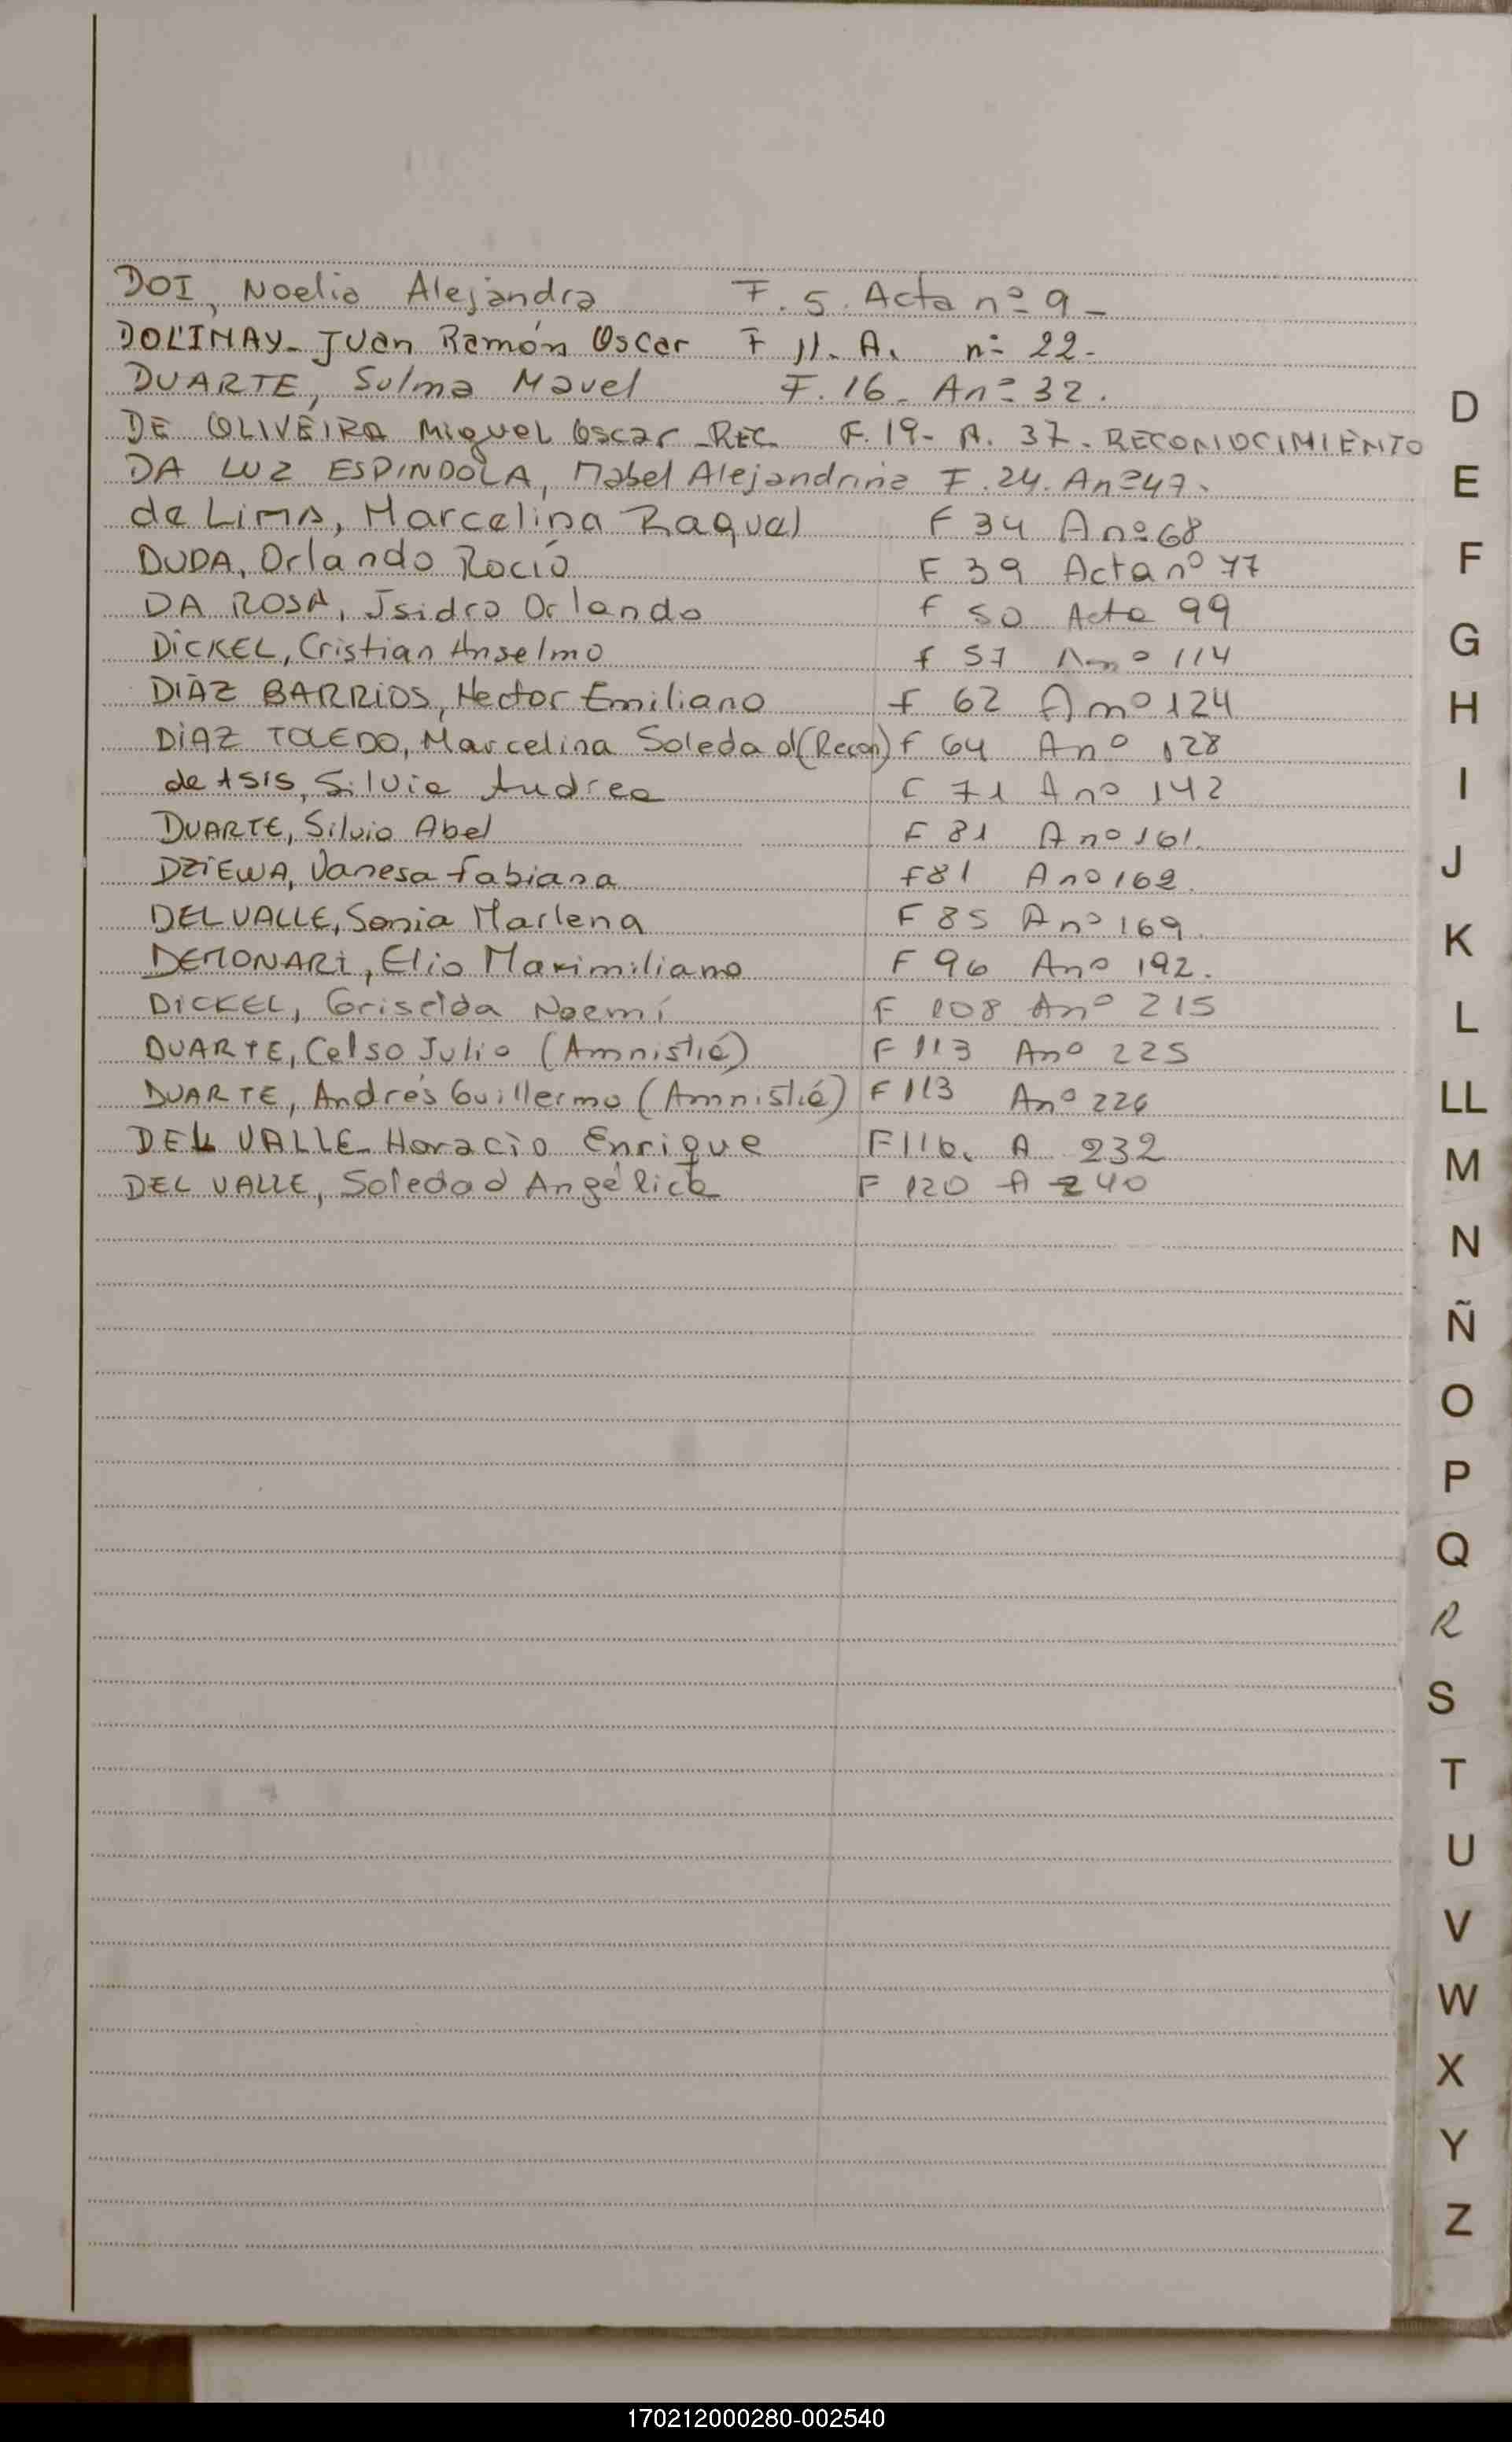 DOI, Noelia Alejandra F. 5. Acta nº 9-
DOLINAY- Juan Ramón Oscar F 11. A. nº 22-
DUARTE, Sulma Mavel F. 16- Anº 32.
DE OLIVEIRA Miguel Oscar -REC. F. 19- A. 37- RECONOCIMIENTO
DA LUZ ESPINDOLA, Mabel Alejandrina F. 24. Anº47.
de LIMA, Marcelina Raquel F 34 Anº68
DUDA, Orlando Rocío F 39 Acta nº 77
DA ROSA, Isidro Orlando F 50 Acta 99
DICKEL, Cristian Anselmo f 57 Anº 114
DIAZ BARRIOS, Hector Emiliano f 62 Anº124
DIAZ TOLEDO, Marcelina Soledad (Recon) f 64 Anº 128
de ASIS, Silvia Andrea F 71 Anº 142
DUARTE, Silvio Abel F 81 Anº161.
DZIEWA, Vanesa Fabiana F81 Anº162.
DELVALLE, Sonia Marlena F 85 Anº169.
DEMONARI, Elio Maximiliano F 96 Anº 192.
DICKEL, Griselda Noemí F 108 Anº 215
DUARTE, Celso Julio (Amnistía) F 113 Anº 225
DUARTE, Andrés Guillermo (Amnistía) F 113 Anº 226
DEL VALLE- Horacio Enrique F116. A 232
DEL VALLE, Soledad Angélica F 120 A 240
D
E
F
G
H
I
J
K
L
LL
M
N
Ñ
O
P
Q
R
S
T
U
V
W
X
Y
Z
170212000280-002540